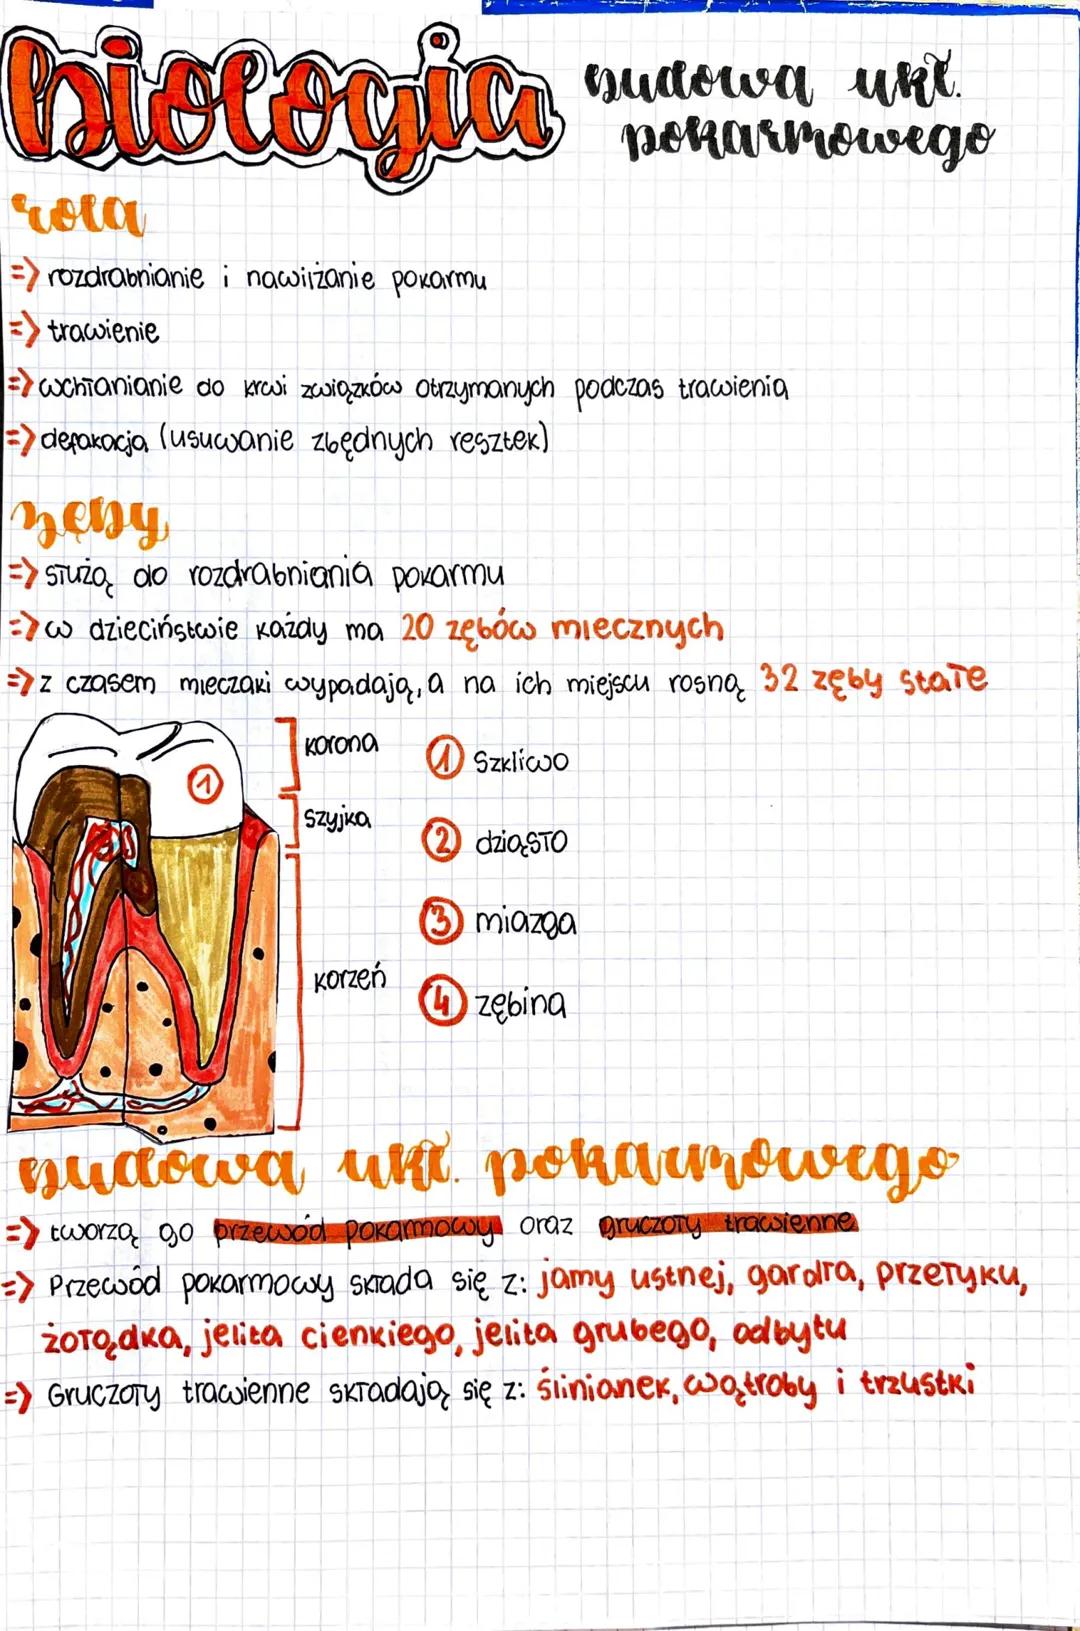 biologia
budowa ukł. pokarmowego
rola
=> rozdrabnianie i nawilżanie pokarmu
=> trawienie
=> wchłanianie do krwi związków otrzymanych podczas trawienia
=> defakacja (usuwanie zbędnych resztek)
zęby
=> służą do rozdrabniania pokarmu
=> w dzieciństwie każdy ma 20 zębów mlecznych
=> z czasem mleczaki wypadają, a na ich miejscu rosną 32 zęby stałe
1
korona
szyjka
korzeń
1 Szkliwo
2 dziąsło
3 miazga
4 zębina
budowa ukł. pokarmowego
=> tworzą go przewód pokarmowy oraz gruczoły trawienne
=> Przewód pokarmowy składa się z: jamy ustnej, gardła, przełyku,
żołądka, jelita cienkiego, jelita grubego, odbytu
=> Gruczoły trawienne składają się z: ślinianek, wątroby i trzustki